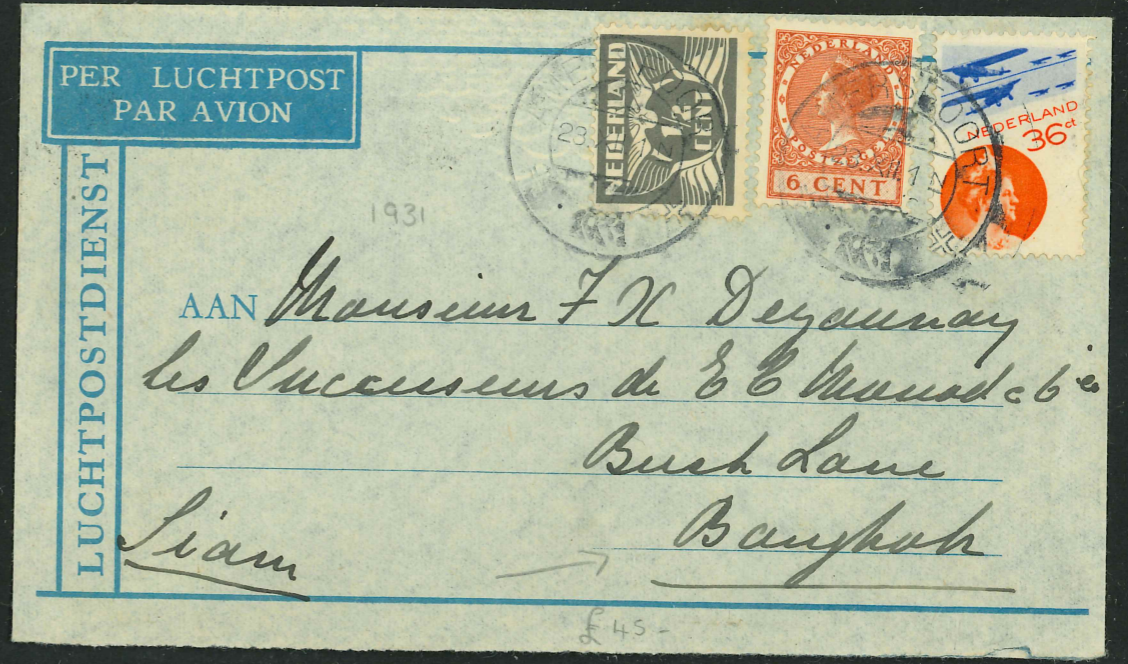 PER LUCHTPOST
PAR AVION
LUCHTPOSTDIENST
NEDERLAND
CENT
NEDERLAND
POSTZEGEL
6 CENT
NEDERLAND
36ct
1931
AAN Monsieur F X Dezaunay
les Successeurs de E C Monod & Cie
Bush Lane
Bangkok
Siam
£45-